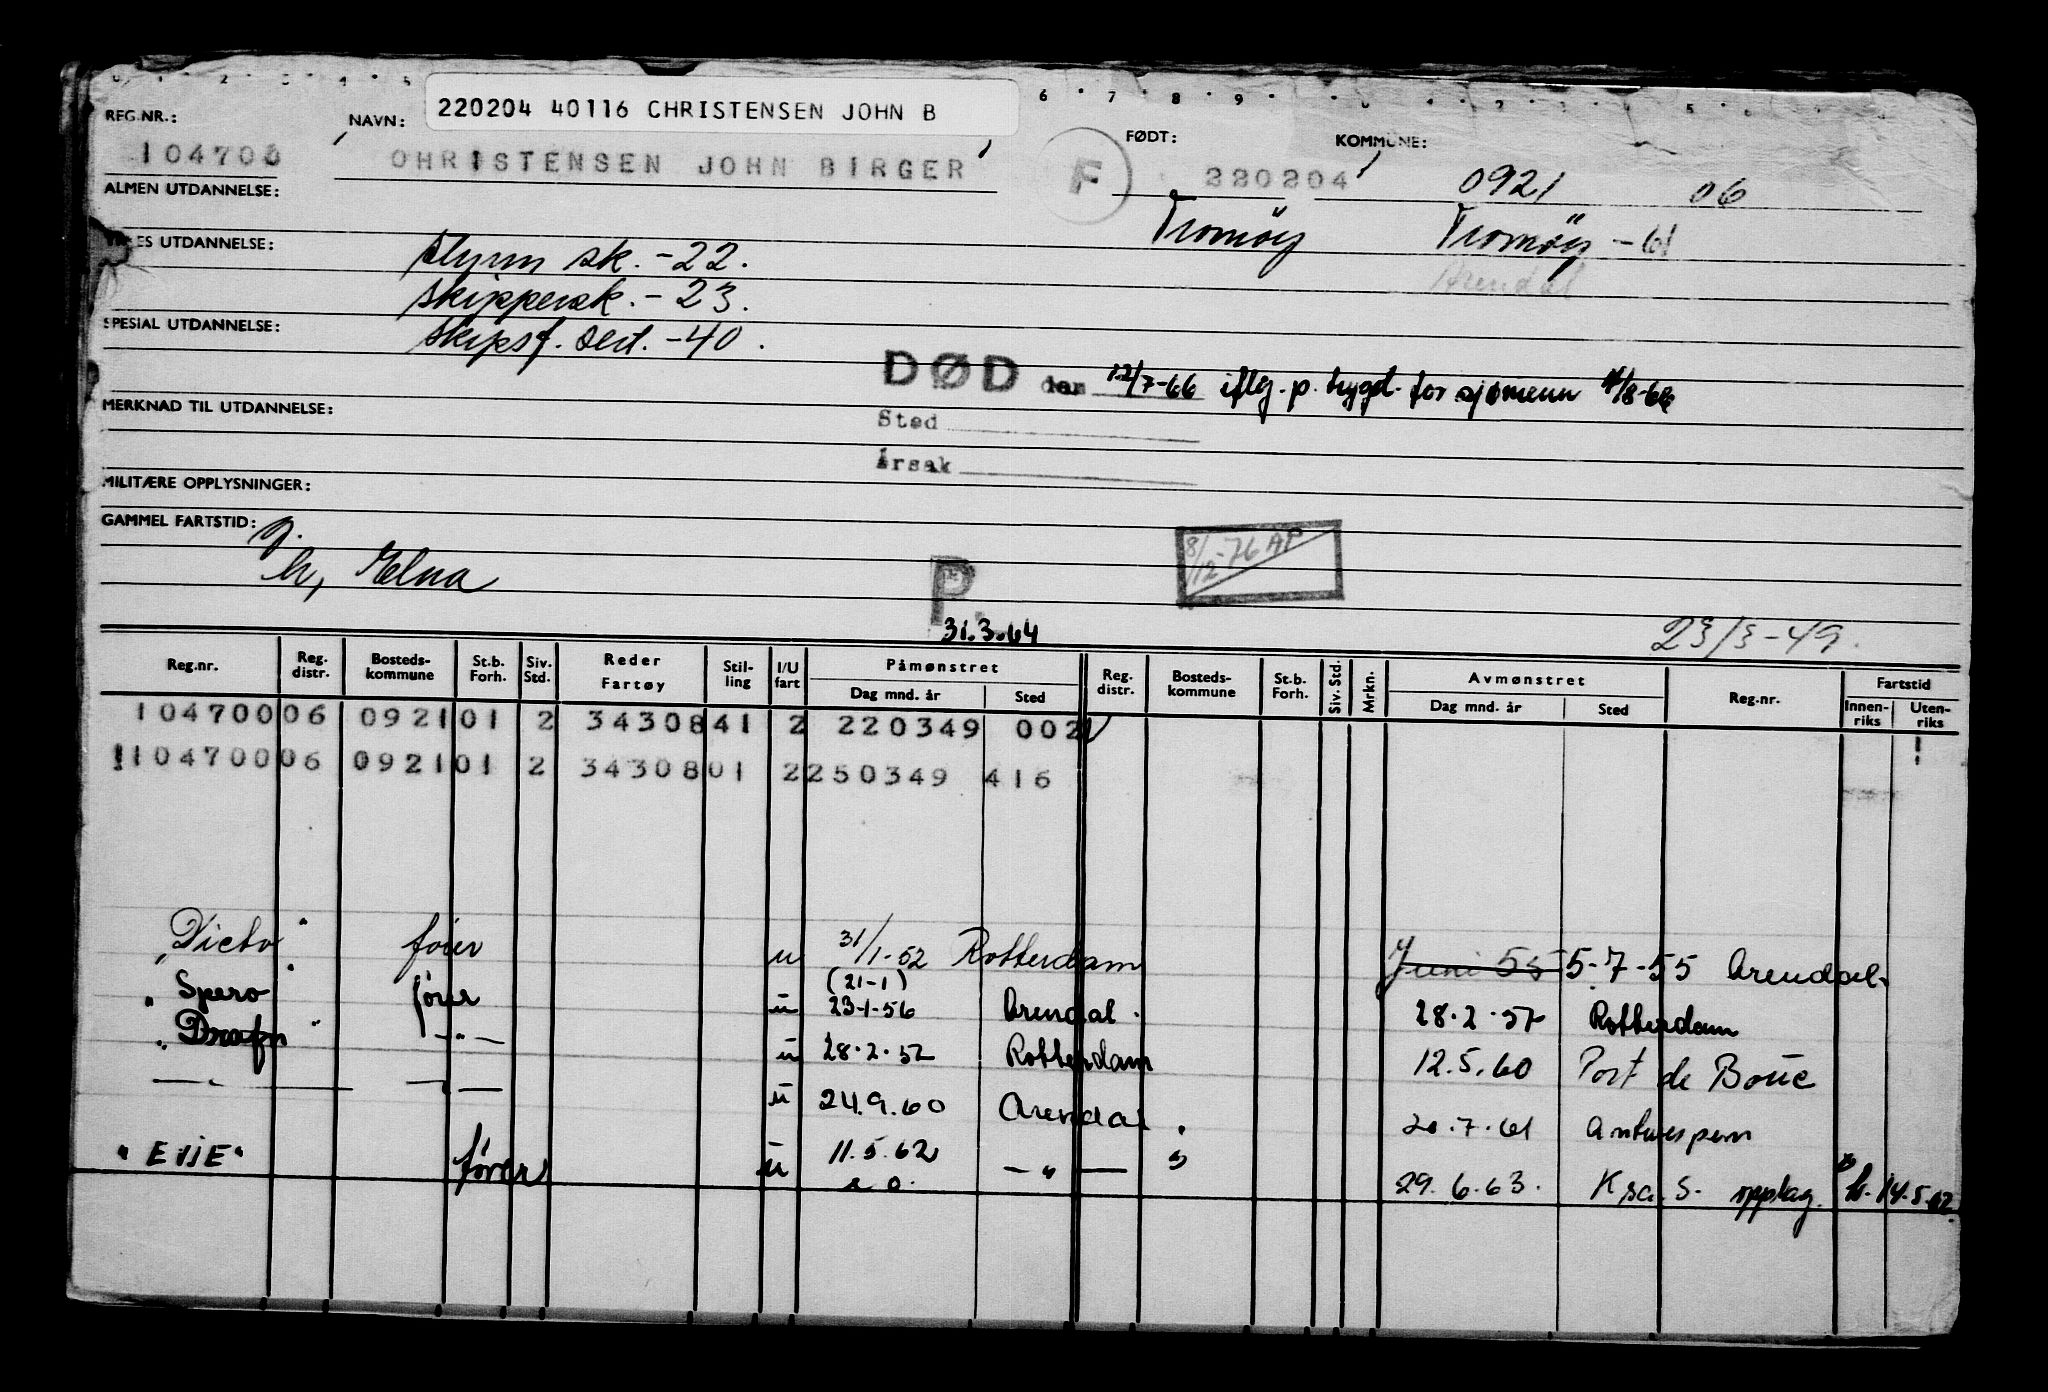 220204 40116 CHRISTENSEN JOHN B
REG.NR.: NAVN: FØDT: KOMMUNE:
104700 CHRISTENSEN JOHN BIRGER F 220204 0921 06
ALMEN UTDANNELSE:
Tromöy Tromöy -61
Arendal
UTDANNELSE: styrm sk. -22.
skippersk. - 23.
SPESIAL UTDANNELSE: skipsf. sert. -40.
DØD den 12/7-66 iflg. p. trygd. for sjømenn
MERKNAD TIL UTDANNELSE:
Sted
Årsak
MILITÆRE OPPLYSNINGER:
GAMMEL FARTSTID: g.
h, Elna
8/12-76 AP
P.
31.3.64
23/3-49.
Reg.nr. Reg. distr. Bosteds-kommune St.b. Forh. Siv. Std. Reder Fartøy Stil-ling I/U fart Påmønstret Dag mnd. år Sted Reg. distr. Bosteds-kommune St.b. Forh. Siv. Std. Mrkn. Avmønstret Dag mnd. år Sted Reg.nr. Fartstid Innen-riks Uten-riks
104700 06 0921 01 2 34308 41 2 220349 002
104700 06 0921 01 2 34308 01 2 250349 416
"Victo" fører u 31/1-52 Rotterdam Juni 55 5-7-55 Arendal.
(21-1)
"Spero" fører u 23-1-56 Arendal. 28.2.57 Rotterdam
"Drafn" —"— u 28.2.57 Rotterdam 12.5.60 Port de Bouc
—"— —"— u 24.9.60 Arendal. 20.7.61 Antwerpen
"ELSE" fører u 11.5.62 —"— 29.6.63. Krsa. S. opplag. 14.5.62.